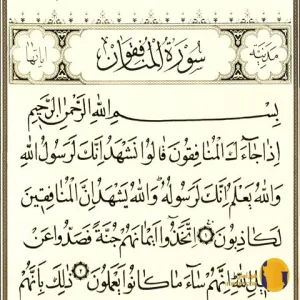 مدنية سورة المنافقون آياتها
بسم الله الرحمن الرحيم
إذا جاءك المنافقون قالوا نشهد إنك لرسول الله
والله يعلم إنك لرسوله والله يشهد إن المنافقين
لكاذبون اتخذوا أيمانهم جنة فصدوا عن
الله إنهم ساء ما كانوا يعملون ذلك بأنهم